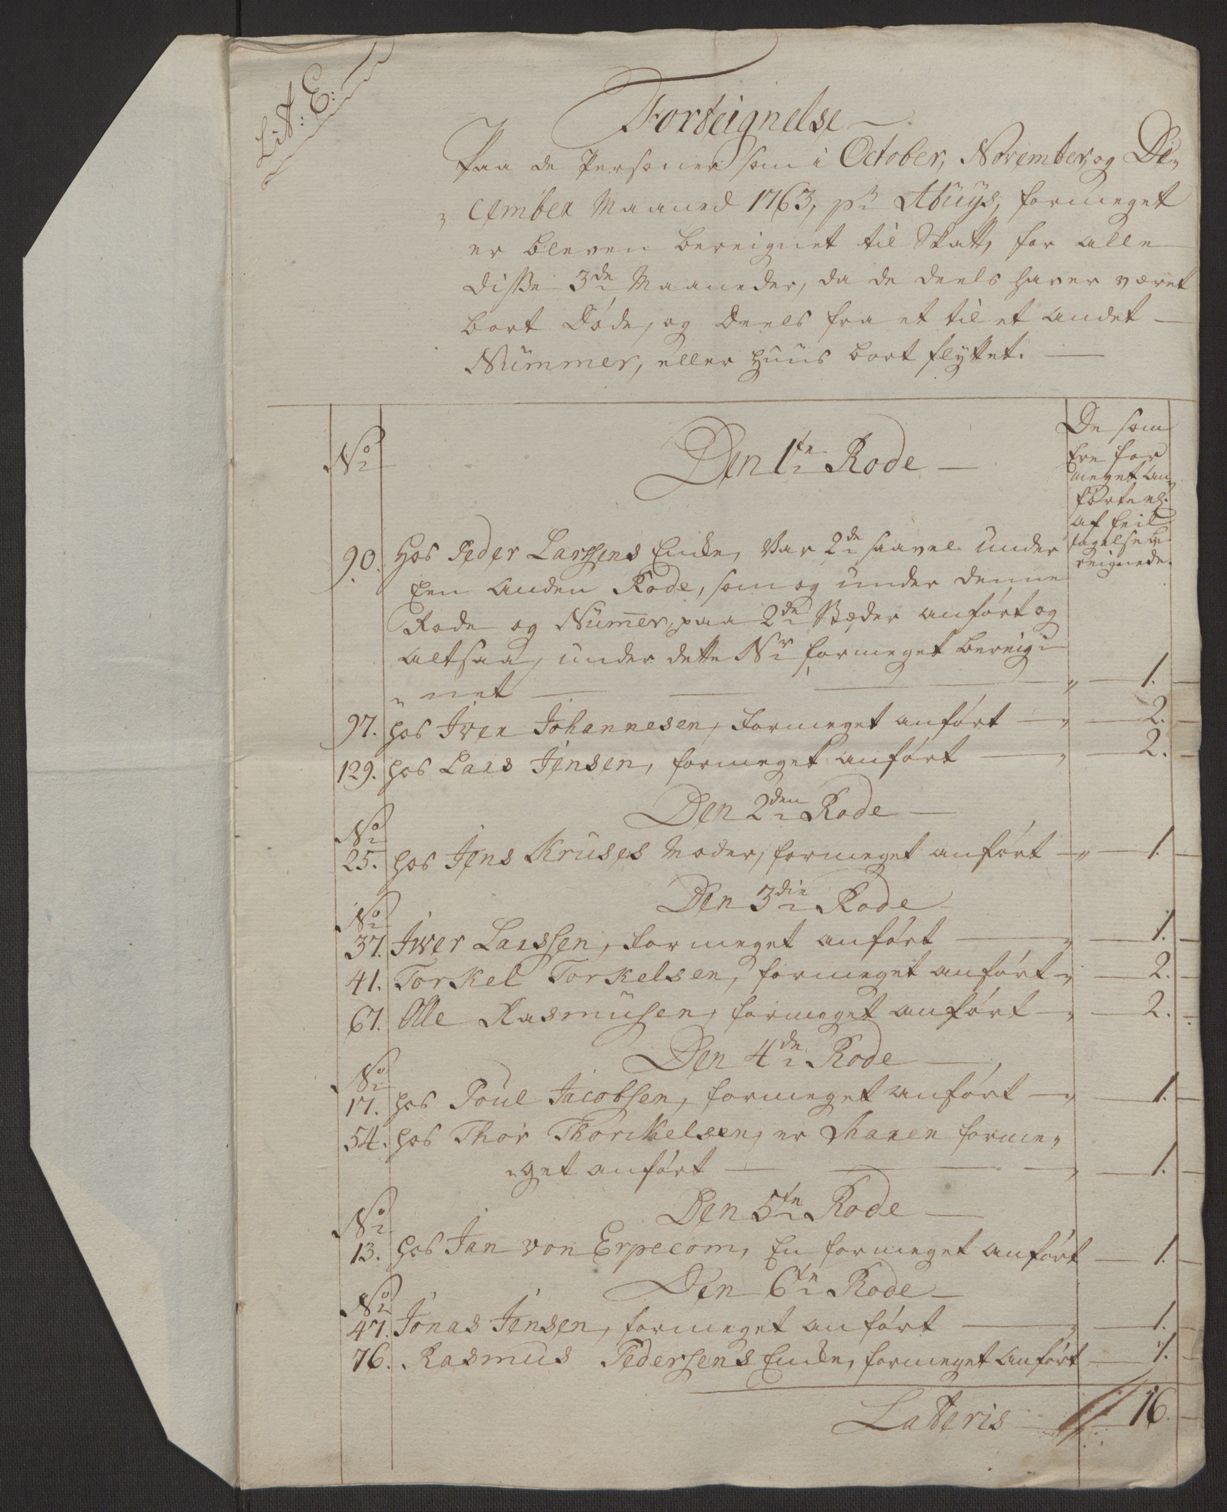 Lit: E:
Forteignelse
Paa de Personer som i October, November, og De-
cember Maaned 1763, pr Abuys, formeget
er bleven bereignet til Skatt, for alle
disse 3de Maaneder, da de deels haver været
bort Døde, og deels fra et til et andet
Nummer, eller Huus bort flyttet.
No
Den 1te Rode
De som
ere for
meget an-
førte el.
af feil-
tagelse be-
reignede.
90. Hos Peder Larssens Enke, var 2de saavel under
Een anden Rode, som og under denne
Rode og Numer, paa 2de Stæder anført og
altsaa, under dette Nr formeget bereig-
net 1.
97. hos Iver Johannesen, formeget anført 2.
129. hos Lars Jensen, formeget anført 2.
Den 2den Rode
No
25. hos Jens Kruses Moder, formeget anført 1.
Den 3die Rode
No
37. Iver Larssen, formeget anført 1.
41. Torkel Torkelsen, formeget anført 2.
67. Olle Rasmusen, formeget anført 2.
Den 4de Rode
No
17. hos Poul Jacobsen, formeget anført 1.
54. hos Thor Thorckelsen, er forme-
get anført 1.
Den 5te Rode
No
13. hos Jan von Erpecom, En formeget anført 1.
Den 6te Rode
No
47. Jonas Jensen, formeget anført 1.
76. Rasmus Pedersens Enke, formeget anført 1.
Lateris 16.